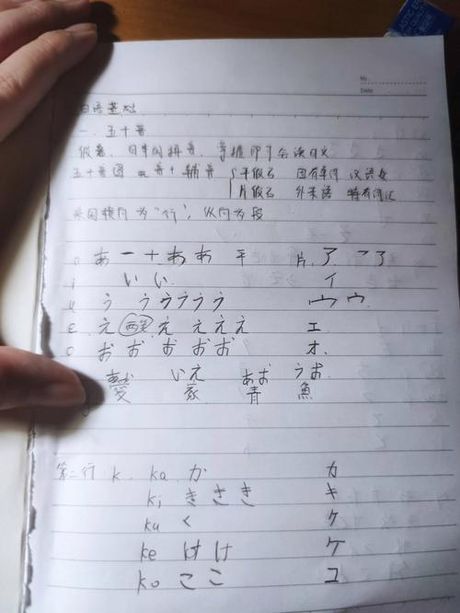 No.
Date
日语基础
一、五十音
假名,日本的拼音,掌握即可会读日文
五十音图 元音+辅音 平假名 固有单词 汉语发
片假名 外来语 特有词汇
横向为"行",纵向为段
a あ 一 十 あ あ 平 片 ア フ ア
i い い イ
u う う う う う う 宀 ウ
e え え え え え エ
o お お お お お オ
いえ あお うお
愛 家 青 魚
第二行 k ka か カ
ki き さ き キ
ku く ケ
ke け け ケ
ko こ こ コ